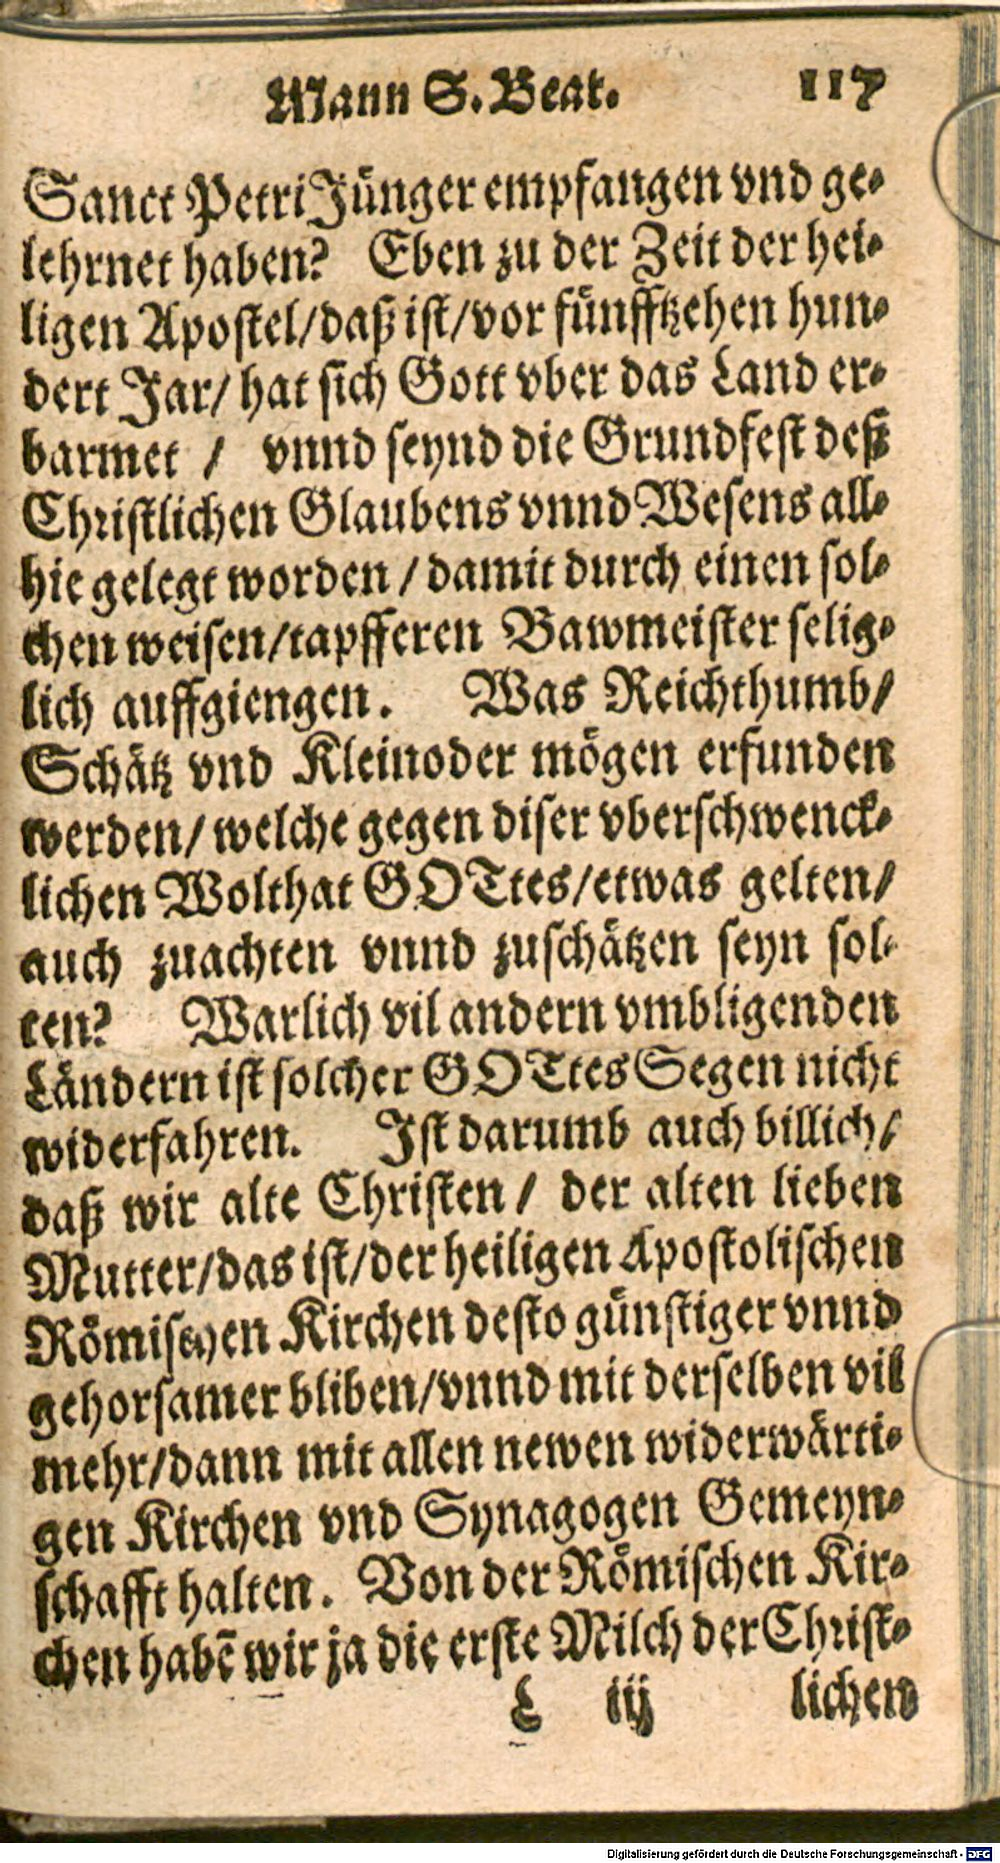 Mann S. Beat. 117
Sanct Petri Jünger empfangen vnd ge-
lehrnet haben? Eben zu der Zeit der hei-
ligen Apostel/daß ist/vor fünfftzehen hun-
dert Jar/ hat sich Gott vber das Land er-
barmet / vnnd seynd die Grundfest deß
Christlichen Glaubens vnnd Wesens all-
hie gelegt worden / damit durch einen sol-
chen weisen/tapfferen Bawmeister selig-
lich auffgiengen. Was Reichthumb/
Schätz vnd Kleinoder mögen erfunden
werden/ welche gegen diser vberschwenck-
lichen Wolthat GOTtes/etwas gelten/
auch zuachten vnnd zuschätzen seyn sol-
ten? Warlich vil andern vmbligenden
Ländern ist solcher GOTtes Segen nicht
widerfahren. Ist darumb auch billich/
daß wir alte Christen / der alten lieben
Mutter/das ist/der heiligen Apostolischen
Römischen Kirchen desto günstiger vnnd
gehorsamer bliben/vnnd mit derselben vil
mehr/dann mit allen newen widerwärti-
gen Kirchen vnd Synagogen Gemeyn-
schafft halten. Von der Römischen Kir-
chen habē wir ja die erste Milch der Christ-
L iij lichen
Digitalisierung gefördert durch die Deutsche Forschungsgemeinschaft - DFG